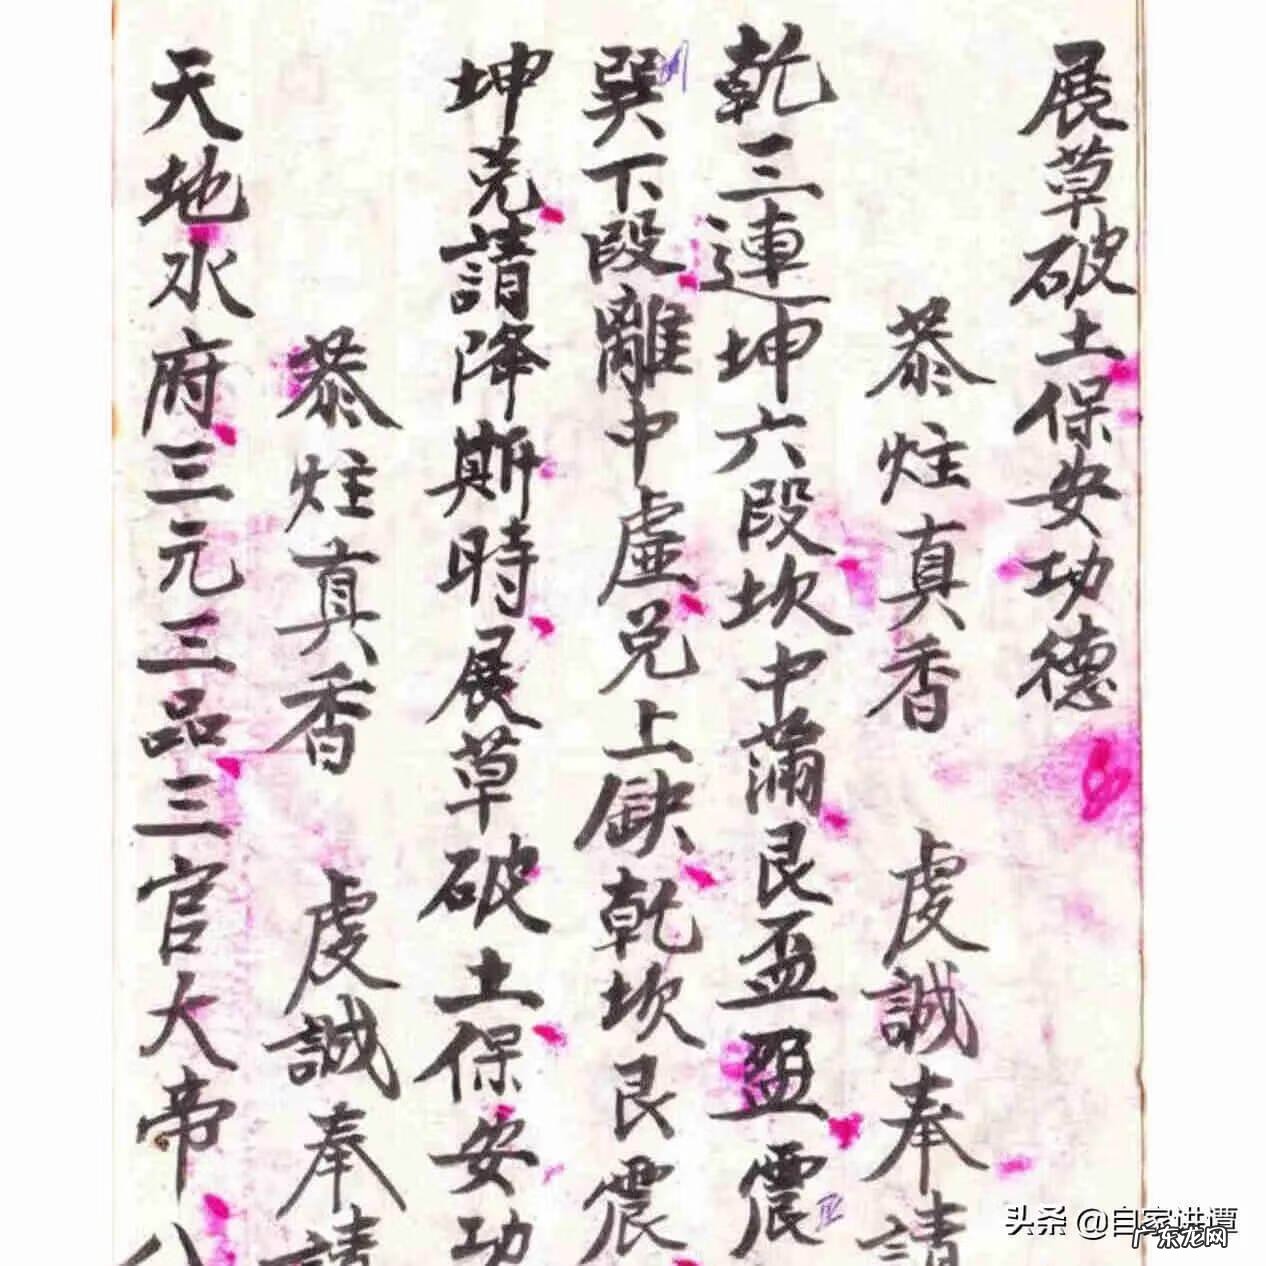 展草破土保安功德
恭炷真香 虔誠奉請
乾三連坤六段坎中滿艮盃盈震
巽下段離中虛兌上缺乾坎艮震
坤兌請降斯時展草破土保安功
恭炷真香 虔誠奉請
天地水府三元三品三官大帝八
头条 @自家讲谭
广东龙网